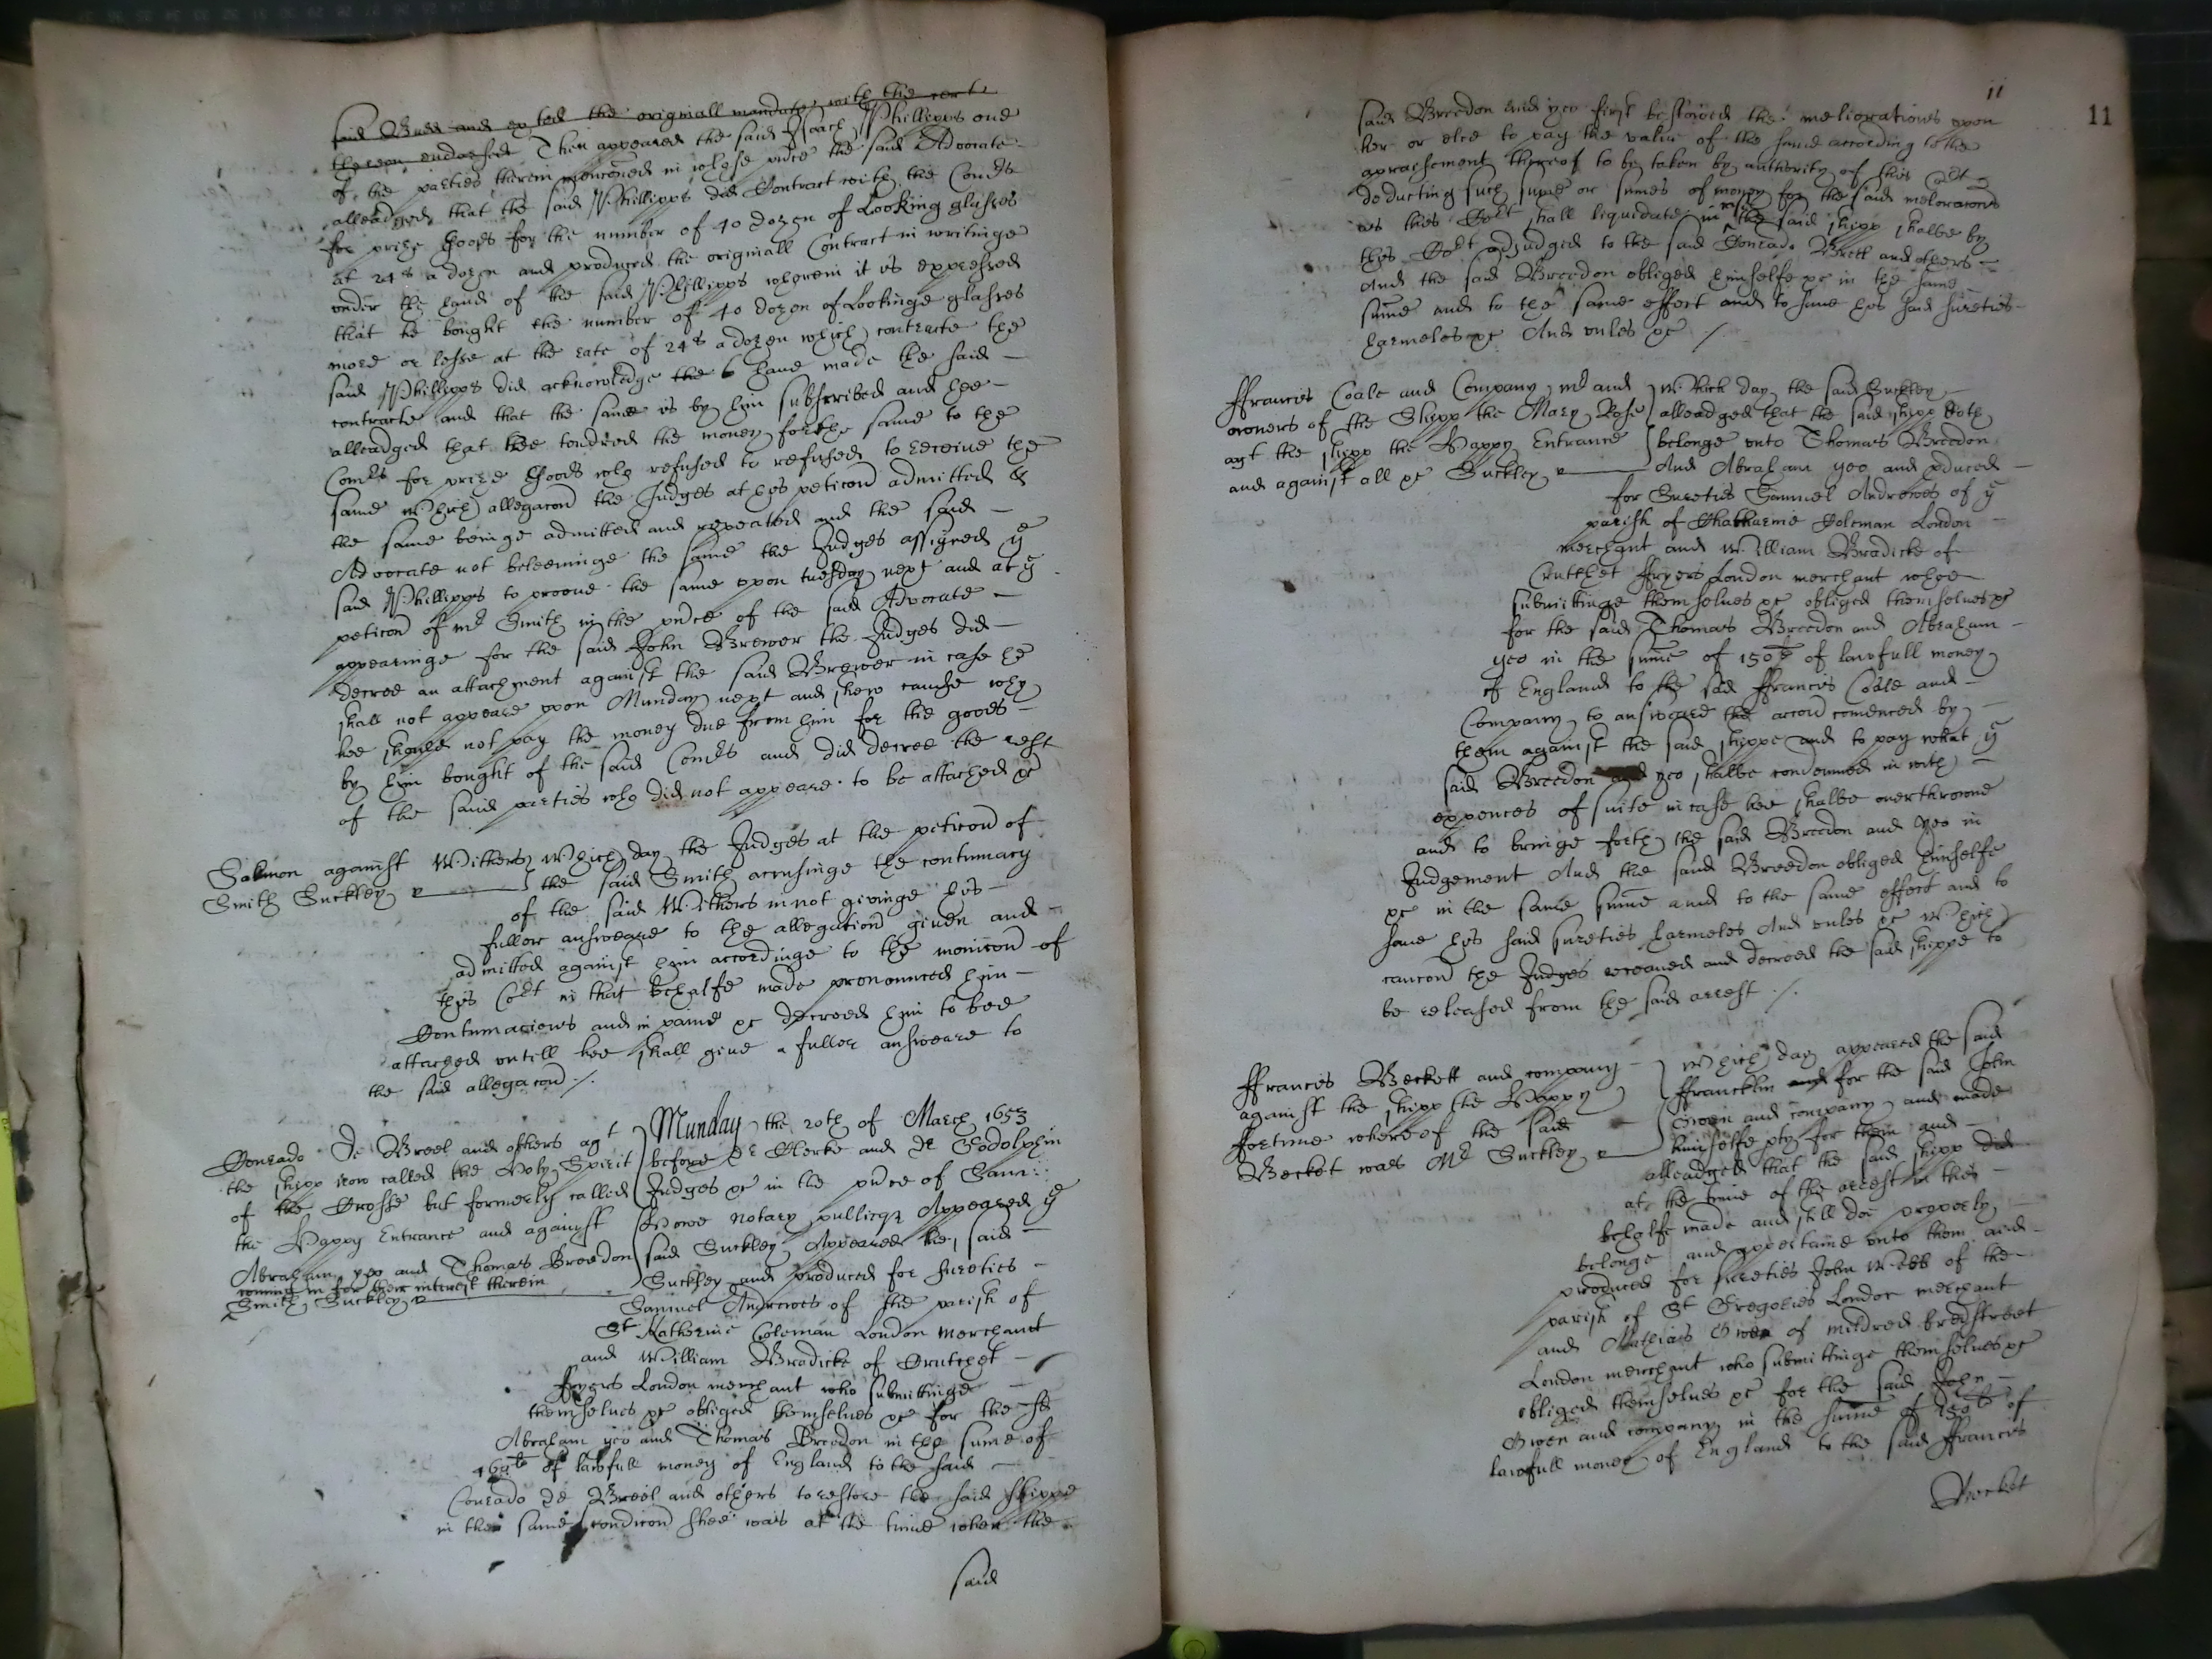 said Budd and exhited the originall mandate with the cert
thereon endorsed Then appeared the said Isaack Phillipps one
of the parties therein menconed in whose pnce the said Advocate
alleadged that the said Phillipps did Contract with the Comrs
for prize goods for the number of 40 dozen of Looking glasses
at 24s a dozen and produced the originall Contract in writinge
under the hand of the said Phillipps wherein it is expressed
that he bought the number of 40 dozen of Lookinge glasses
more or lesse at the rate of 24s a dozen which contracte the
said Phillipps did acknowledge the to have made the said
contracte and that the same is by him subscribed and hee
alleadged that hee tendred the money for the same to the
Comrs for prize Goods who refused to refused to receive the
same Which allegacon the Judges at his peticon admitted &
the same beinge admitted and repeated and the said
Advocate not beleevinge the same the Judges assigned ye
said Phillipps to proove the same upon tuesday next and at ye
peticon of mr Smith in the pnce of the said Advocate
appearinge for the said John Brewer the Judges did
decree an attachment against the said Brewer in case he
shall not appeare upon Munday next and shew cause why
hee should not pay the money due from him for the goods
by him bought of the said Comrs and did decree the rest
of the said parties who did not appeare to be attached &c
Salmon against Withers
Smith Suckley
Which day the Judges at the peticon of
the said Smith accusinge the contumacy
of the said Withers in not givinge his
fuller answeare to the allegation given and
admitted against him accordinge to the monicon of
this Cort in that behalfe made pronounced him
Contumacious and in paine &c decreed him to bee
attached untill hee shall give a fuller answeare to
the said allegacon ./.
Conrado De Breel and others agt
the shipp now called the Holy Spirit
of the Crosse but formerly called
the Happy Entrance and against
Abraham yeo and Thomas Breedon
coming in for their interest therein
Smith Suckley
Munday the 20th of March 1653
before Dr Clerke and Dr Godolphin
Judges &c in the pnce of Sam:
Howe notary publicq Appeared ye
said Suckley Appeared the said
Suckley and produced for sureties
Samuel Andrewes of the parish of
St Katherine Coleman London Merchant
and William Bradicke of Crutchet
ffryers London merchant who submittinge
themselves &c obliged themselves &c for the sd
Abraham yeo and Thomas Breedon in the sume of
of lawfull money of England to the said
Conrado de Breel and others to restore the said shippe
in the same condicon shee was at the time when the
said
11
11
said Breedon and yeo first bestowed the meliorationes upon
her or else to pay the value of the same according to the
apraisement thereof to be taken by authority of this Cort
deducting such sume or sumes of money for the said meloracons
as this Cort shall liquidate in case the said shipp shalbe by
this Cort adjudged to the said Conrado Brell and others
And the said Breedon obliged himselfe &c in the same
sume and to the same effect and to save his said sureties
harmeles &c And unles &c ./
ffrancis Coale and Company mr and
owners of the Shipp the Mary Rose
agt the shipp the Happy Entrance
and against all &c Suckley
Which day the said Suckley
alleadged that the said shipp doth
belonge unto Thomas Breedon
And Abraham yeo and pduced
for Sureties Samuel Andrewes of ye
parish of Chatharine Coleman London
merchant and William Bradicke of
Crutchet ffryers London merchant whoe
submittinge themselves &c obliged themselves &c
for the said Thomas Breedon and Abraham
yeo in the sume of 150li of lawfull money
of England to the sad ffrancis Coale and
Company to answeare the accon comenced by
them against the said shippe and to pay what ye
said Breedon and yeo shalbe condemned in with
expences of suite in case hee shalbe overthrowne
and to bringe forth the said Breedon and yeo in
Judgement And the said Breedon obliged himselfe
&c in the same sume and to the same effect and to
save his said sureties harmeles And unles &c Which
caucon the Judges receaved and decreed the said shippe to
be released from the said arrest ./.
ffrancis Beckett and company
against the shipp the Happy
fortune whereof the said
Becket was Mr Suckley
Which day appeared the said
ffrancklin and for the said John
Owen and company and made
himselfe pty for them and
alleadged that the said shipp did
at the time of the arrest in this
behalfe made and still doe properly
belonge and appertaine unto them and
produced for sureties John Webb of the
parish of St Gregories London merchant
and Mathias Owen of mildred bredstreet
London merchant who submittinge themselves &c
obliged themselves &c for the said John
Owen and company in the sume of 150li of
lawfull money of England to the said ffrancis
Becket